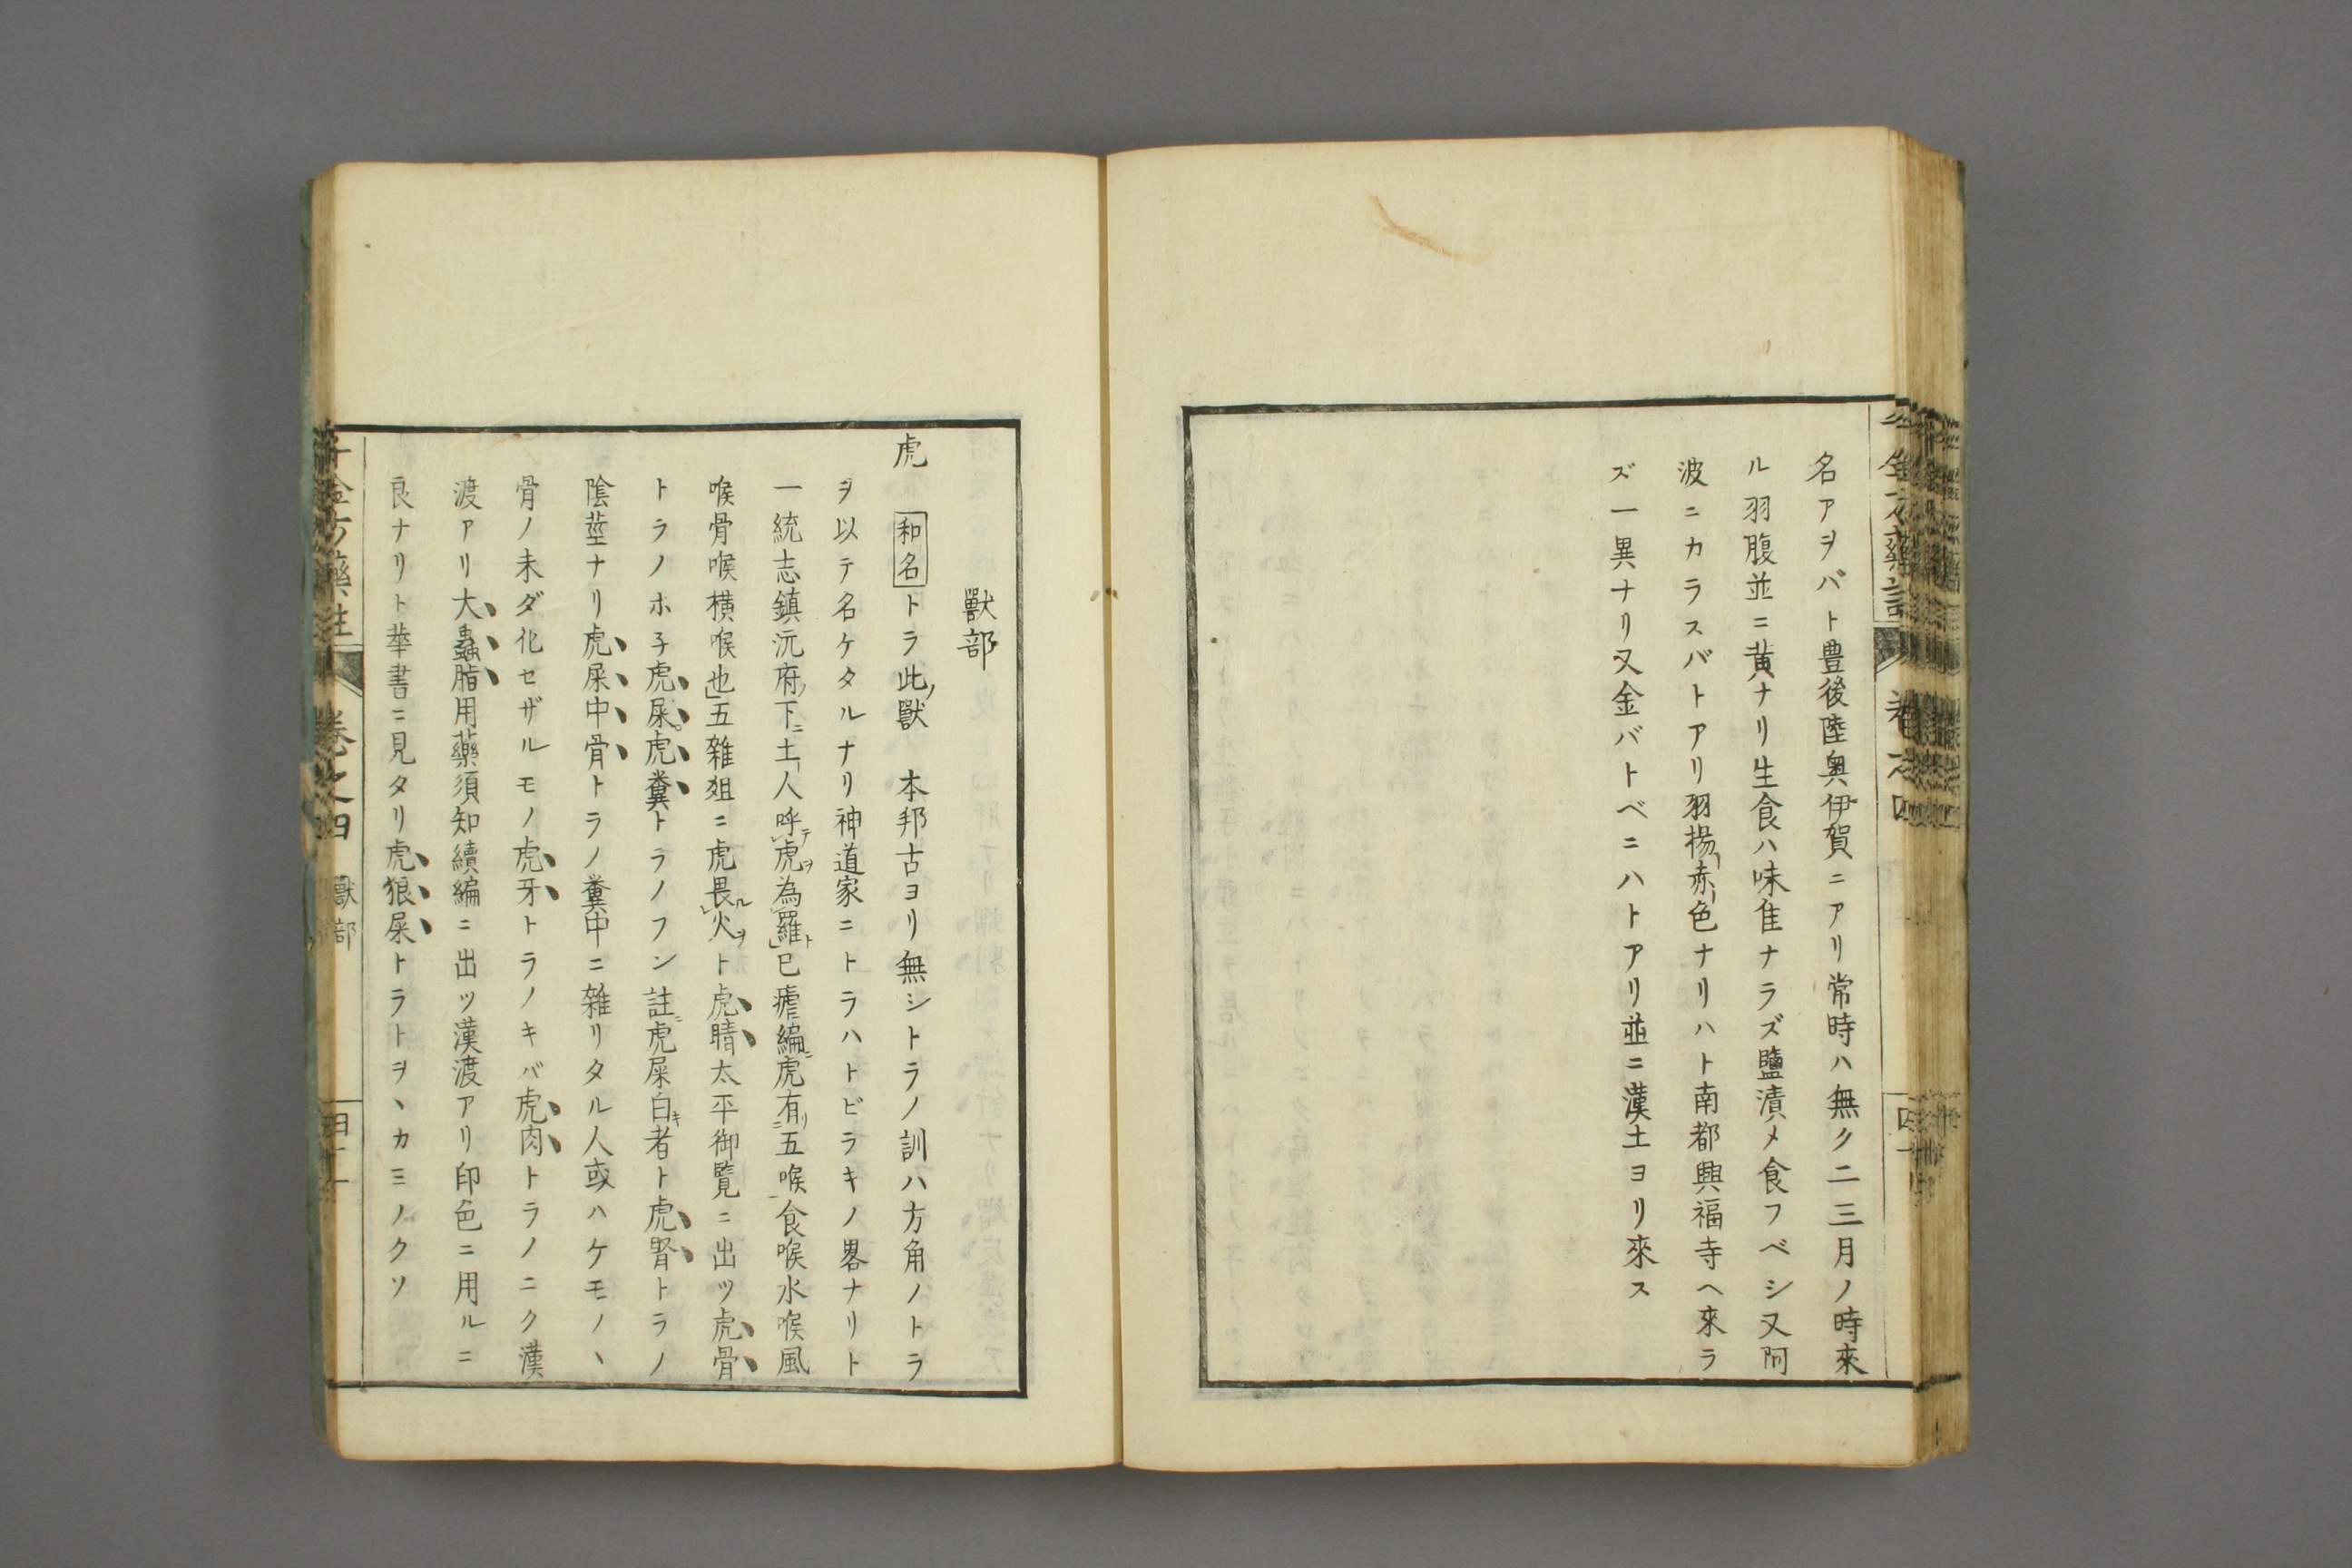 名アヲバト豊後陸奥伊賀ニアリ常時ハ無ク二三月ノ時來
ル羽腹並ニ黄ナリ生食ハ味隹ナラズ鹽漬メ食フベシ又阿
波ニカラスバトアリ羽揚赤色ナリハト南都興福寺ヘ來ラ
ズ一異ナリ又金バトベニハトアリ並ニ漢土ヨリ來ス
獸部
虎 和名トラ此獸 本邦古ヨリ無シトラノ訓ハ方角ノトラ
ヲ以テ名ケタルナリ神道家ニトラハトビラキノ畧ナリト
一統志鎮沅府ノ下ニ土人呼テ虎ヲ為羅ト巳瘧編ニ虎有リ五喉食喉水喉風
喉骨喉横喉也五雜爼ニ虎畏ル火ヲト虎睛太平御覧ニ出ツ虎骨
トラノホ子虎屎。虎糞トラノフン註ニ虎屎白キ者ト虎腎トラノ
陰莖ナリ虎屎中骨トラノ糞中ニ雜リタル人或ハケモノヽ
骨ノ未ダ化セザルモノ虎牙トラノキバ虎肉トラノニク漢
渡アリ大蟲脂用藥須知續編ニ出ツ漢渡アリ印色ニ用ルニ
良ナリト華書ニ見タリ虎狼屎トラトヲヽカミノクソ
卷之四 獸部